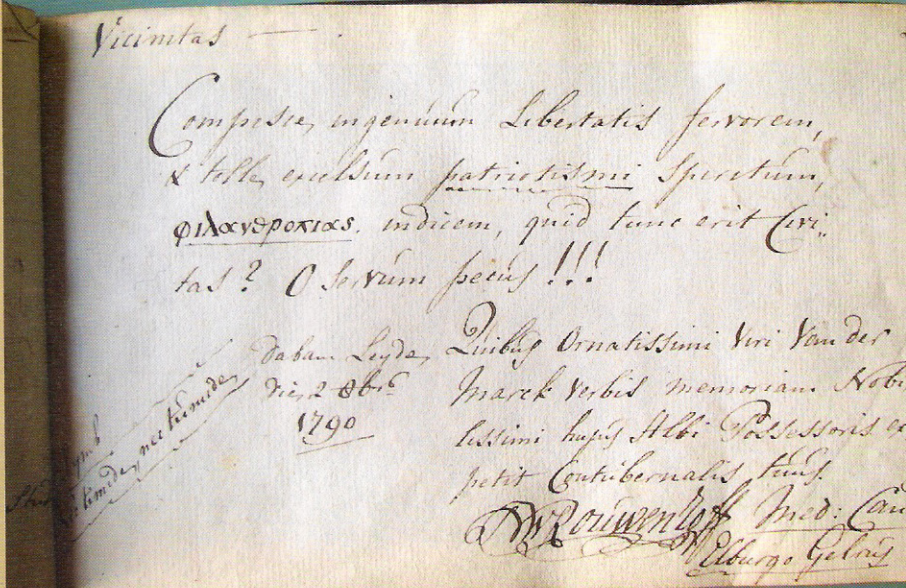 Vicinitas — .
Compesce, ingenuum Libertatis fervorem,
& tolle, excelsum patriotismi Spiritum,
φιλανθροπιας. indicem, quid tunc erit Civi-
tas? O Servum pecus!!!
dabam Leyde,
die 2 8brs
1790
Quibus Ornatissimi Viri Van der
Marck verbis memoriam Nobi
lissimi hujus Albi Possessoris ex
petit Contubernalis tuus.
Rouwenhoff Med: Can
Elburgo Gelrus
Symb
nec timide, nec tumide,